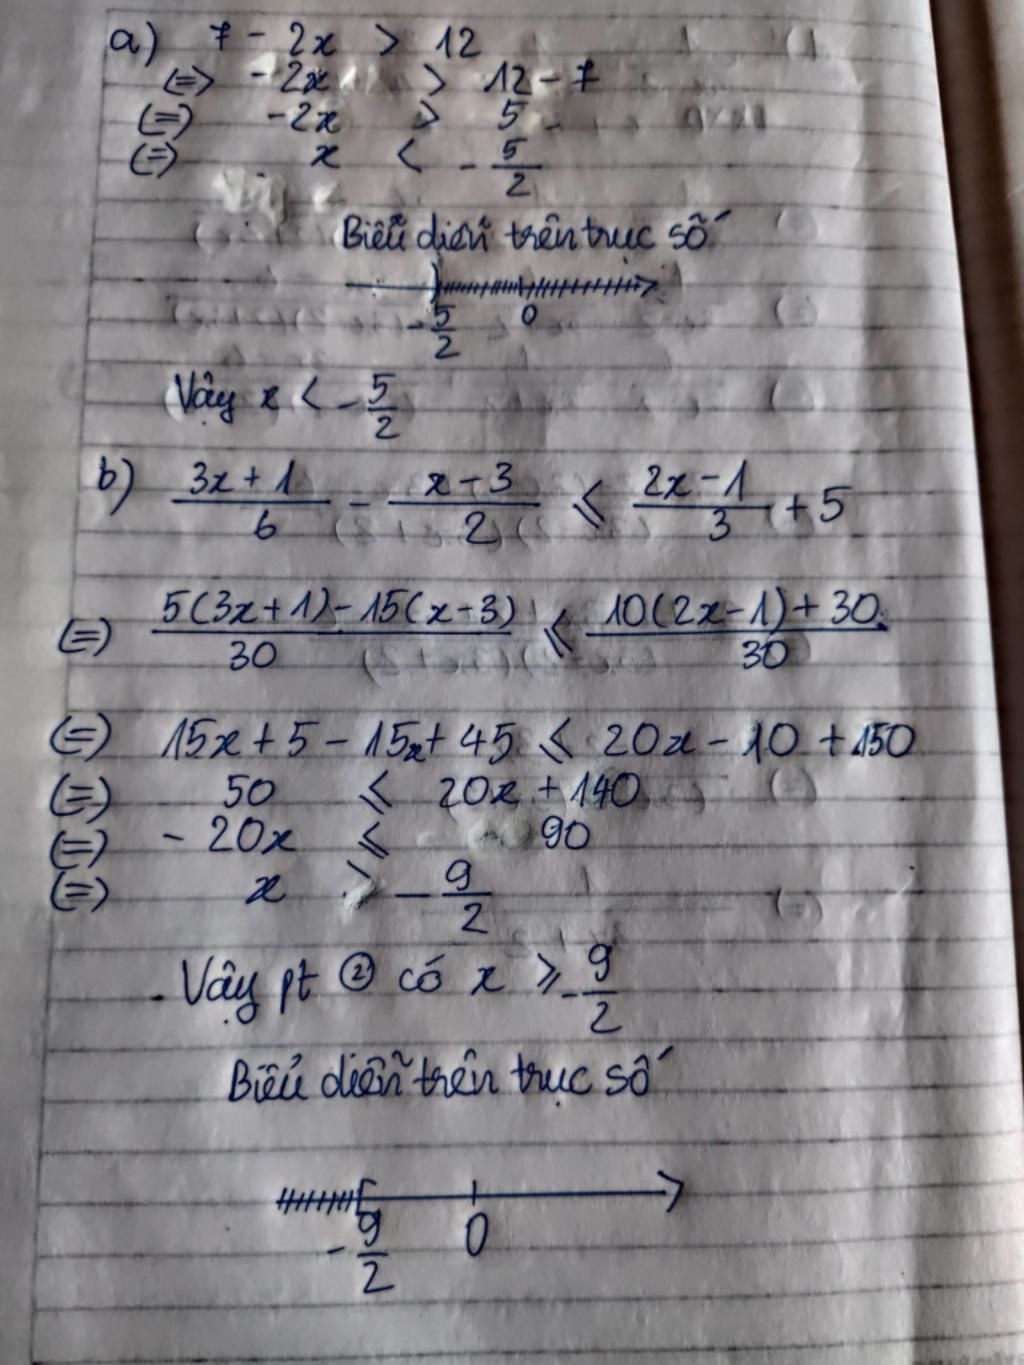 a) 7 - 2x > 12
(=) - 2x > 12 - 7
(=) -2x > 5
(=) x < - 5/2
Biểu diễn trên trục số
- 5/2 0
Vậy x < - 5/2
b) (3x + 1)/6 - (x - 3)/2 ⩽ (2x - 1)/3 + 5
(=) (5(3x + 1) - 15(x - 3))/30 ⩽ (10(2x - 1) + 30.)/30
(=) 15x + 5 - 15x + 45 ⩽ 20x - 10 + 150
(=) 50 ⩽ 20x + 140
(=) - 20x ⩽ 90
(=) x ⩾ - 9/2
Vậy pt ② có x ⩾ - 9/2
Biểu diễn trên trục số
- 9/2 0